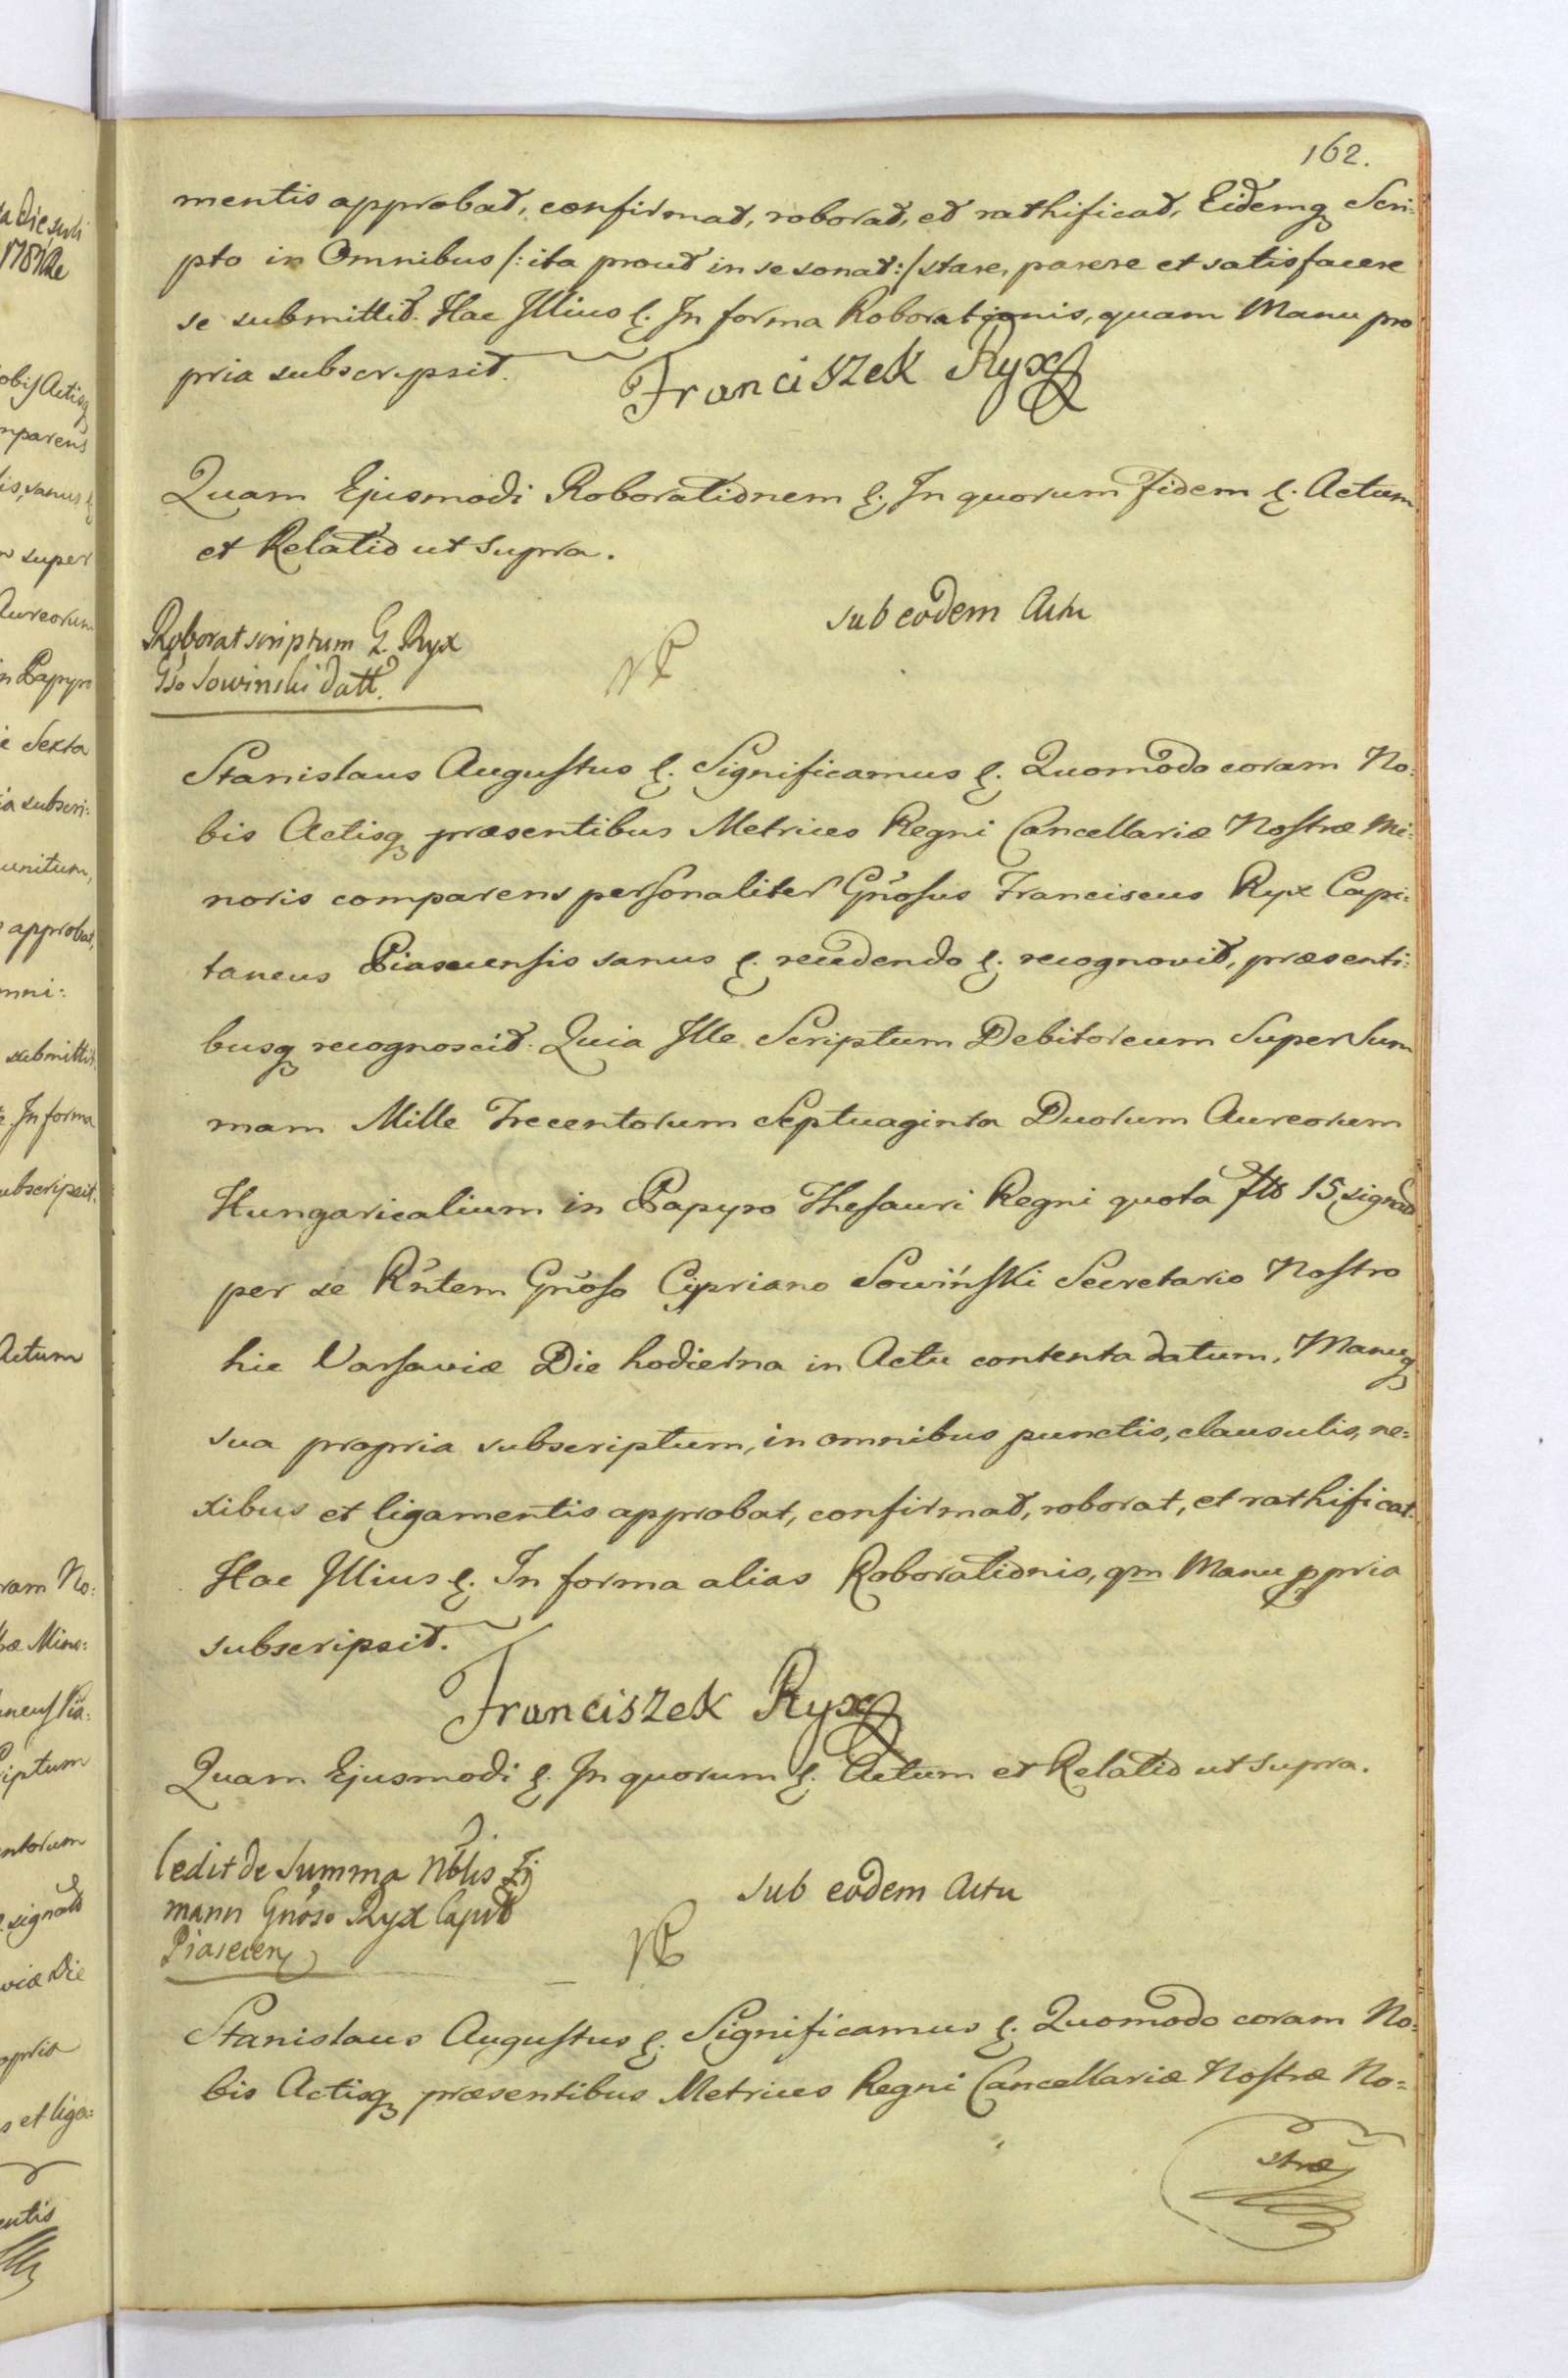 162.
mentis approbat, confirmat, roborat, et rathificat, Eidemq Scri:
pto in Omnibus /: ita prout in se sonat :/ stare, parere et satisfacere
se submittit. Hac Illius &. In forma Roborationis, quam Manu pro
pria subscripsit.
Franciszek Ryx
Quam Ejusmodi Roborationem &. In quorum Fidem &. Actum
et Relatio ut supra.
Roborat scriptum G. Ryx
Gso Sowinski datt.
sub eodem Actu
Stanislaus Augustus &. Significamus &. Quomodo coram No:
bis Actisq præsentibus Metrices Regni Cancellariæ Nostræ Mi:
noris comparens personaliter Gnosus Franciscus Ryx Capi:
taneus Piasecensis sanus &. recedendo &. recognovit, præsenti:
busq recognoscit. Quia Ille Scriptum Debitoreum Super Sum
mam Mille Trecentorum Septuaginta Duorum Aureorum
Hungaricalium in Papyro Thesauri Regni quota ftt 15 signat
per se Rntem Gnoso Cypriano Sowiński Secretario Nostro
hic Varsaviæ Die hodierna in Actu contenta datum, Manuq
sua propria subscriptum, in omnibus punctis, clausulis, ne:
xibus et ligamentis approbat, confirmat, roborat, et rathificat.
Hac Illius &. In forma alias Roborationis, qm Manu ppria
subscripsit.
Franciszek Ryx
Quam Ejusmodi &. In quorum &. Actum et Relatio ut supra.
Cedit de Summa Nblis Zi
mann Gnoso Ryx Capit
Piasecen
sub eodem Actu
Stanislaus Augustus &. Significamus &. Quomodo coram No:
bis Actisq præsentibus Metrices Regni Cancellariæ Nostræ No=
stræ